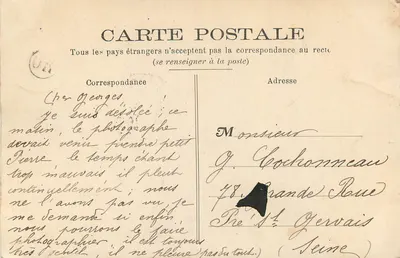 CARTE POSTALE
Tous les pays étrangers n'acceptent pas la correspondance au recto
(se renseigner à la poste)
Correspondance
Cher Georges,
je suis désolée ; ce
matin, le photographe
devait venir prendre petit
Pierre, le temps étant
trop mauvais, il pleut
continuellement ; nous
ne l'avons pas vu, je
me demande si enfin
nous pourrons le faire
photographier, il est toujours
très gentil, il ne pleure pas du tout
Adresse
Monsieur
G. Cochonneau
78, Grande Rue
Pré St. Gervais
(Seine)